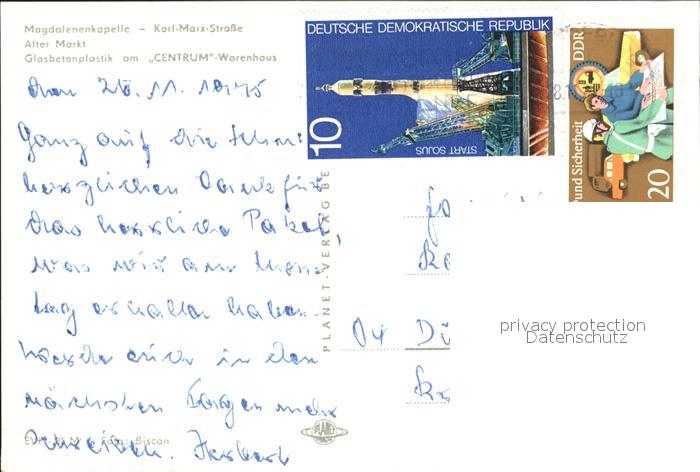 Magdalenenkapelle – Karl-Marx-Straße
Alter Markt
Glasbetonplastik am „CENTRUM"-Warenhaus
DEUTSCHE DEMOKRATISCHE REPUBLIK
10
START SOJUS
DDR
und Sicherheit
20
den 26.11.1975
Ganz auf die
herzlichen Dank für
das herrliche Paket,
was wir am
tag erhalten haben.
in den
nächsten Tagen mehr
Herbert
PLANET-VERLAG BE
04 Dü
privacy protection
Datenschutz
Foto: Biscan
PLANET